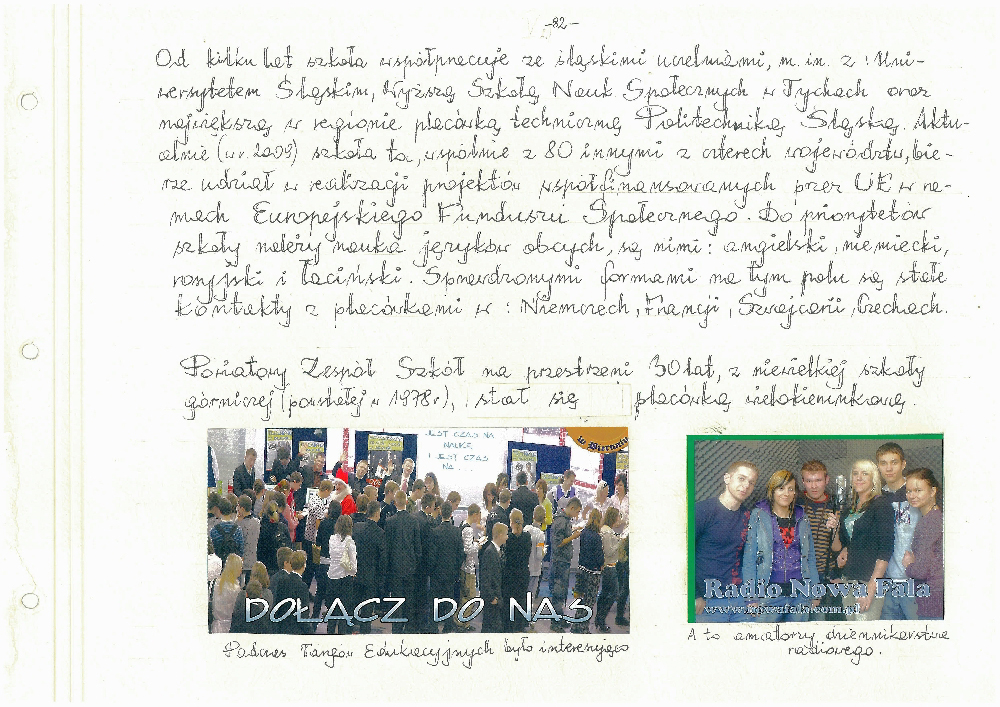 -82-
Od kilku lat szkoła współpracuje ze śląskimi uczelniami, m.in. z: Uni-
wersytetem Śląskim, Wyższą Szkołą Nauk Społecznych w Tychach oraz
największą w regionie placówką techniczną Politechniką Śląską. Aktu-
alnie (w r. 2009) szkoła ta, wspólnie z 80 innymi z czterech województw, bie-
rze udział w realizacji projektów współfinansowanych przez UE w ra-
mach Europejskiego Funduszu Społecznego. Do priorytetów
szkoły należy nauka języków obcych, są nimi: angielski, niemiecki,
rosyjski i łaciński. Sprawdzonymi formami na tym polu są stałe
kontakty z placówkami w: Niemczech, Francji, Szwajcarii, Czechach.
Powiatowy Zespół Szkół na przestrzeni 30 lat, z niewielkiej szkoły
górniczej (powstałej w 1978 r), stał się placówką wielokierunkową.
JEST CZAS NA
NAUKĘ
I JEST CZAS
NA...
w Bieruniu
DOŁĄCZ DO NAS
Podczas Targów Edukacyjnych było interesująco
Radio Nowa Fala
A to amatorzy dziennikarstwa
radiowego.